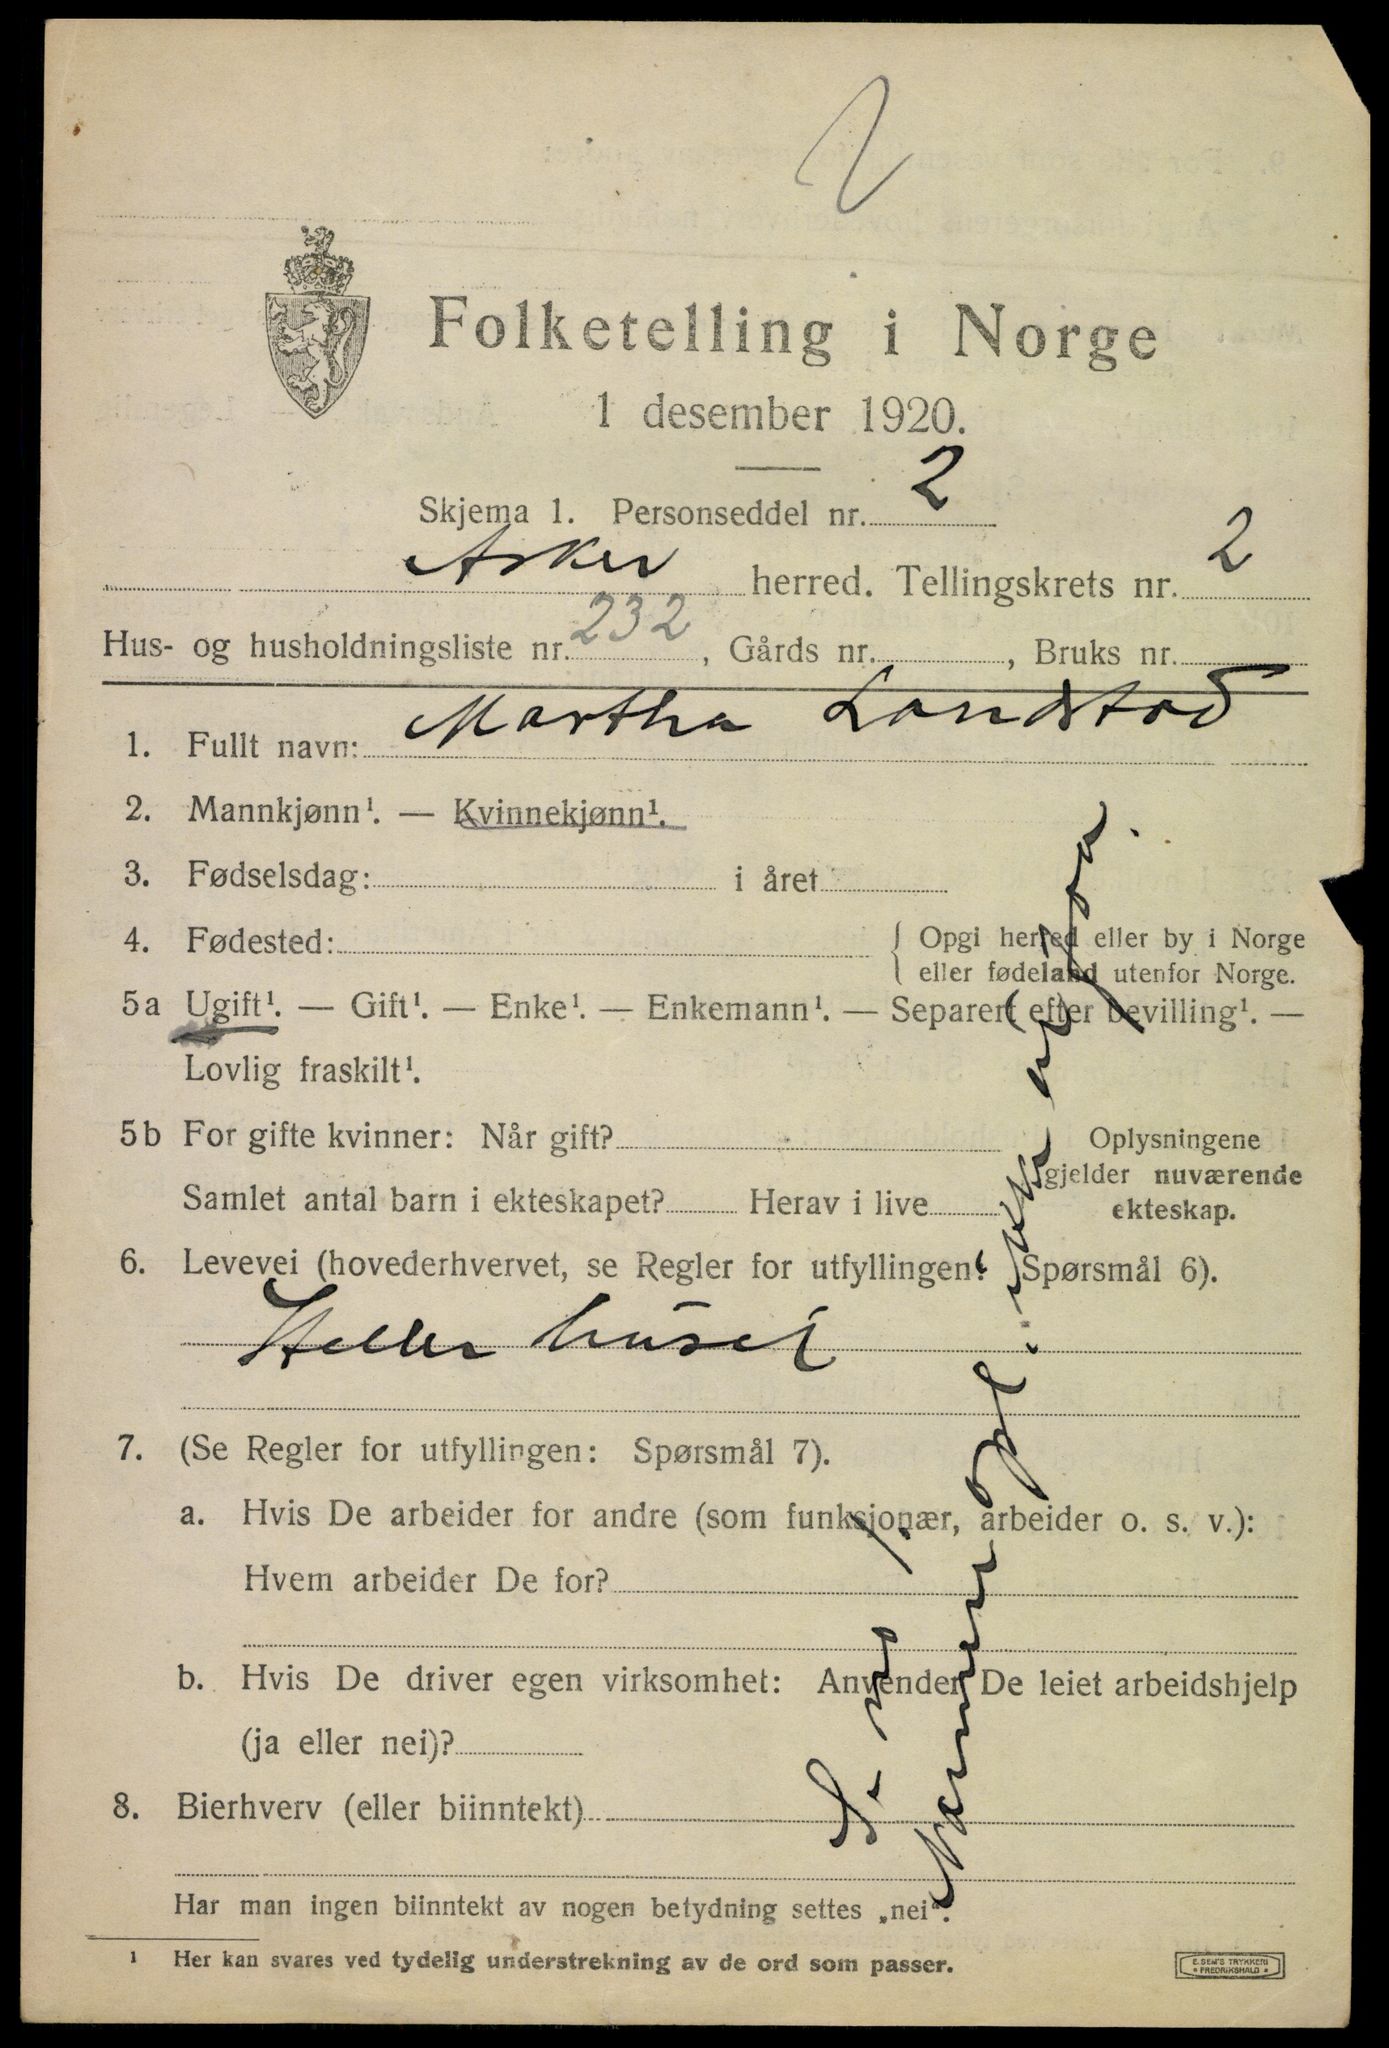 2
Folketelling i Norge
1 desember 1920.
Skjema 1. Personseddel nr. 2
Asker herred. Tellingskrets nr. 2
Hus- og husholdningsliste nr. 232, Gårds nr. , Bruks nr.
1. Fullt navn: Martha Landstad
2. Mannkjønn¹. — Kvinnekjønn¹.
3. Fødselsdag: i året
4. Fødested: { Opgi herred eller by i Norge
eller fødeland utenfor Norge.
5a Ugift¹. — Gift¹. — Enke¹. — Enkemann¹. — Separert efter bevilling¹. —
Lovlig fraskilt¹.
5b For gifte kvinner: Når gift? Oplysningene
gjelder nuværende
Samlet antal barn i ekteskapet? Herav i live ekteskap.
6. Levevei (hovederhvervet, se Regler for utfyllingen: Spørsmål 6).
Steller huset
7. (Se Regler for utfyllingen: Spørsmål 7).
a. Hvis De arbeider for andre (som funksjonær, arbeider o. s. v.):
Hvem arbeider De for?
b. Hvis De driver egen virksomhet: Anvender De leiet arbeidshjelp
(ja eller nei)?
8. Bierhverv (eller biinntekt)
Har man ingen biinntekt av nogen betydning settes „nei".
¹ Her kan svares ved tydelig understrekning av de ord som passer.
E. SEM'S TRYKKERI
* FREDRIKSHALD *
Se nr 1.